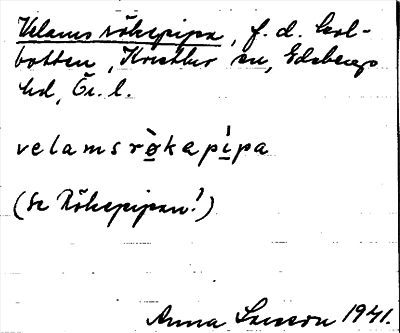 Velams rökepipa, f. d. kol-
botten, Kvistbro sn, Edsbergs
hd, Ör. l.
velamsrø̀kapìpa
(Se Rökepipan!)
Anna 1941.